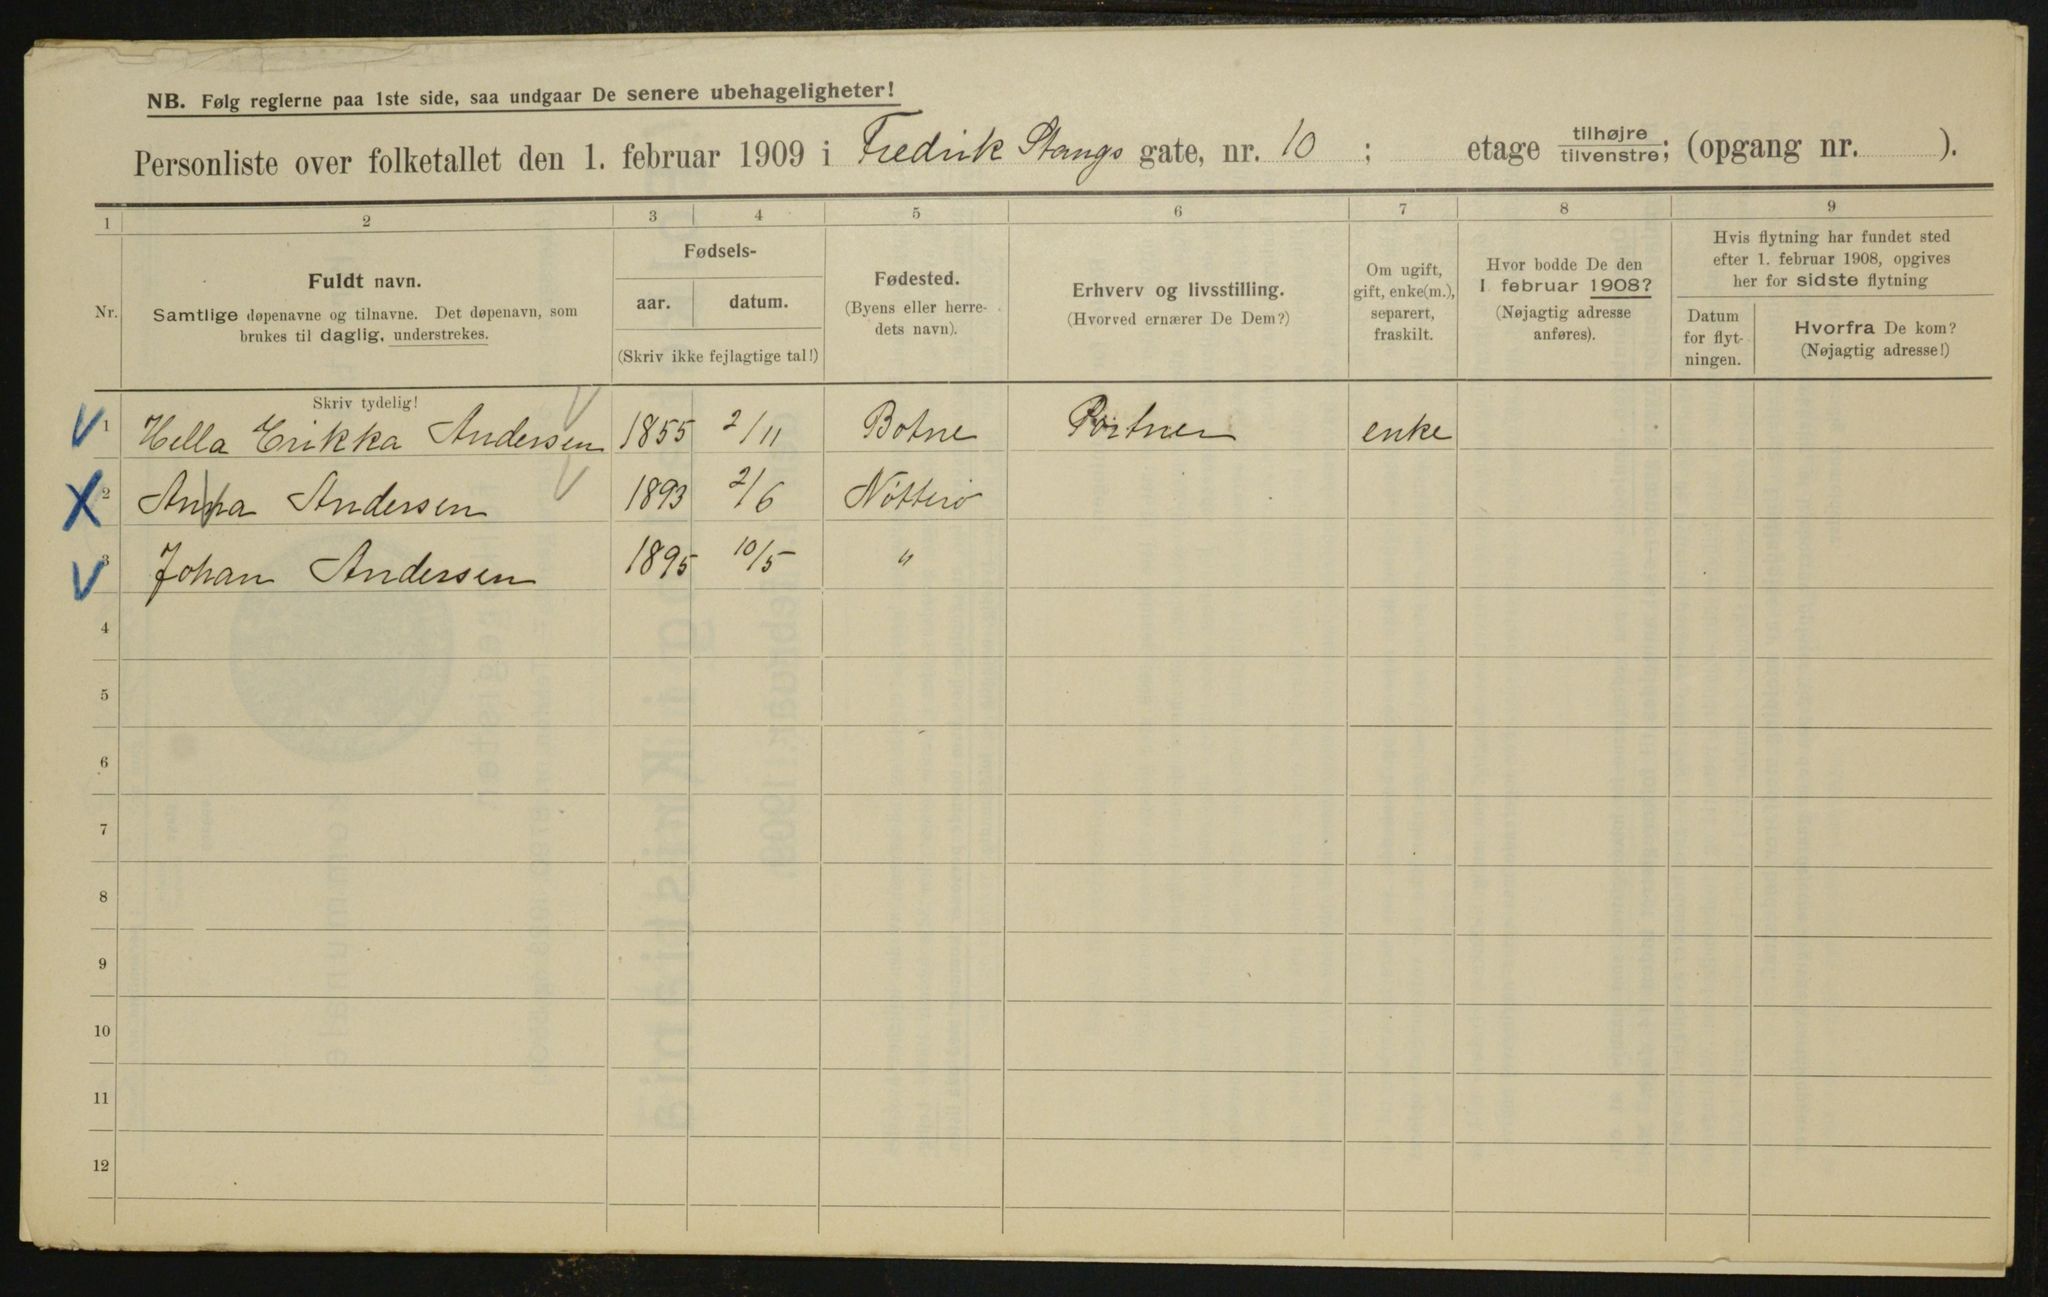 NB. Følg reglerne paa 1ste side, saa undgaar De senere ubehageligheter!
Personliste over folketallet den 1. februar 1909 i Fredrik Stangs gate, nr. 10 ; etage tilhøjre/tilvenstre; (opgang nr. ).
1 2 3 4 5 6 7 8 9
Nr.
Fuldt navn.
Samtlige døpenavne og tilnavne. Det døpenavn, som
brukes til daglig, understrekes.
Fødsels-
aar. datum.
(Skriv ikke fejlagtige tal!)
Fødested.
(Byens eller herre-
dets navn).
Erhverv og livsstilling.
(Hvorved ernærer De Dem?)
Om ugift,
gift, enke(m.),
separert,
fraskilt.
Hvor bodde De den
1 februar 1908?
(Nøjagtig adresse
anføres).
Hvis flytning har fundet sted
efter 1. februar 1908, opgives
her for sidste flytning
Datum
for flyt-
ningen.
Hvorfra De kom?
(Nøjagtig adresse!)
Skriv tydelig!
1 Hella Erikka Andersen 1855 2/11 Botne Portner enke
2 Anna Andersen 1893 2/6 Nötterö
3 Johan Andersen 1895 10/5 "
4
5
6
7
8
9
10
11
12